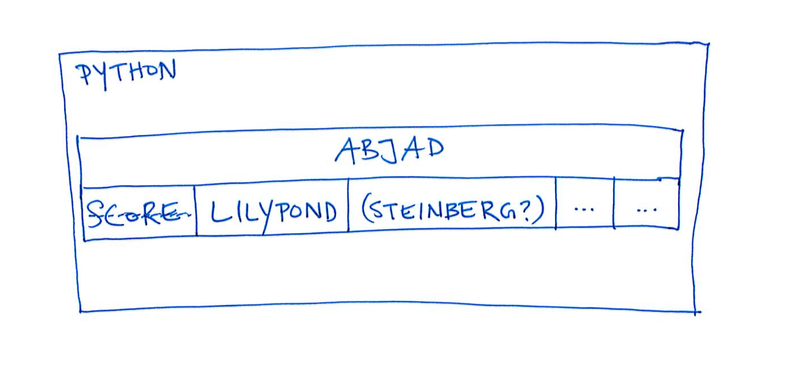 PYTHON
ABJAD
SCORE LILYPOND (STEINBERG?) ... ...